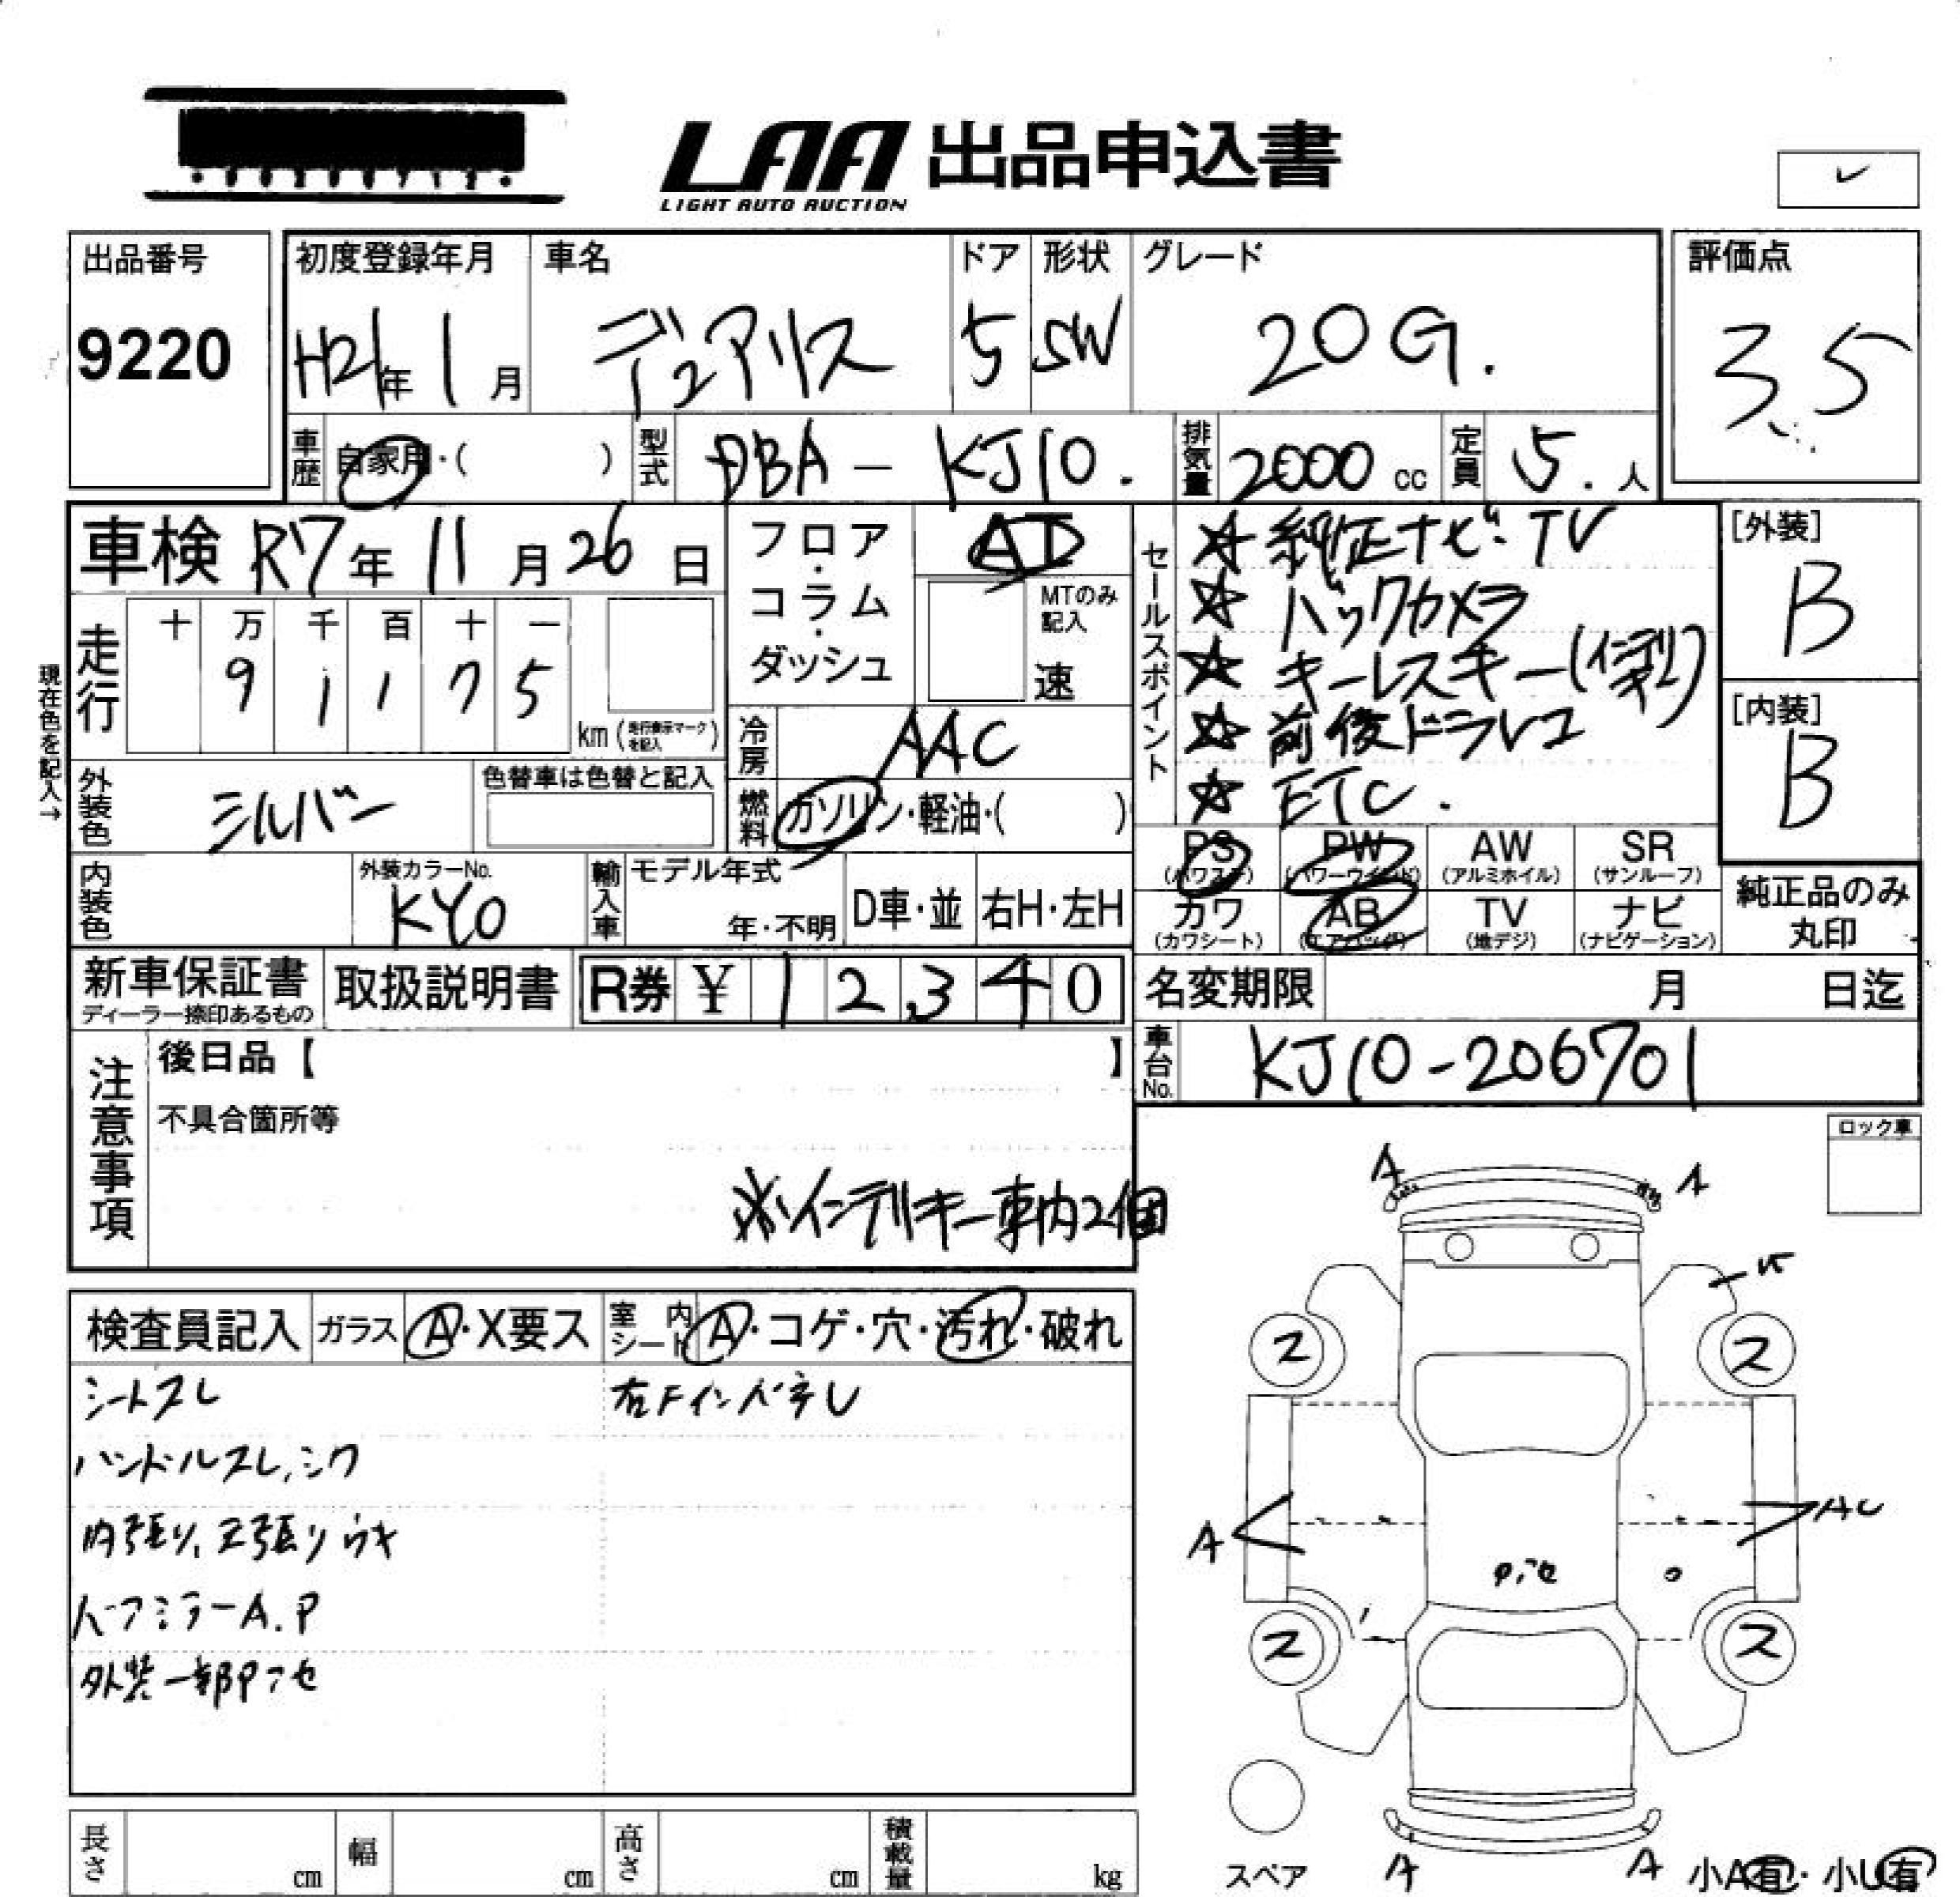 LAA 出品申込書
LIGHT AUTO AUCTION
出品番号
9220
初度登録年月
H21年 1月
車名
デュアリス
ドア
5
形状
SW
グレード
20G.
評価点
3.5
車歴
自家用・( )
型式
DBA - KJ10.
排気量
2000 cc
定員
5. 人
車検 R7年 11月 26日
走行
十 万 千 百 十 一
9 1 1 7 5
km (走行表示マークを記入)
現在色を記入→
フロア・コラム・ダッシュ
AT
MTのみ記入
速
冷房
AAC
燃料
ガソリン・軽油・( )
外装色
シルバー
色替車は色替と記入
内装色
外装カラーNo.
KY0
輸入車
モデル年式
年・不明
D車・並
右H・左H
セールスポイント
☆ 純正ナビ・TV
☆ バックカメラ
☆ キーレスキー(インテリ)
☆ 前後ドラレコ
☆ ETC.
[外装]
B
[内装]
B
PS (パワステ)
PW (パワーウインド)
AW (アルミホイル)
SR (サンルーフ)
カワ (カワシート)
AB (エアバッグ)
TV (地デジ)
ナビ (ナビゲーション)
純正品のみ丸印
新車保証書
ディーラー捺印あるもの
取扱説明書
R券 ¥ 12,340
名変期限 月 日迄
車台No.
KJ10-206701
注意事項
後日品【 】
不具合箇所等
※インテリキー車内2個
ロック車
検査員記入
ガラス
A・X要ス
室内シート
A・コゲ・穴・汚れ・破れ
シートスレ
右FインパネU
ハンドルスレ、シワ
内張り、天張りウキ
ドアミラーA.P
外装一部P、セ
A
A
ス
ス
A
AU
P、セ
ス
ス
スペア
A
A
小A有・小U有
長さ cm
幅 cm
高さ cm
積載量 kg